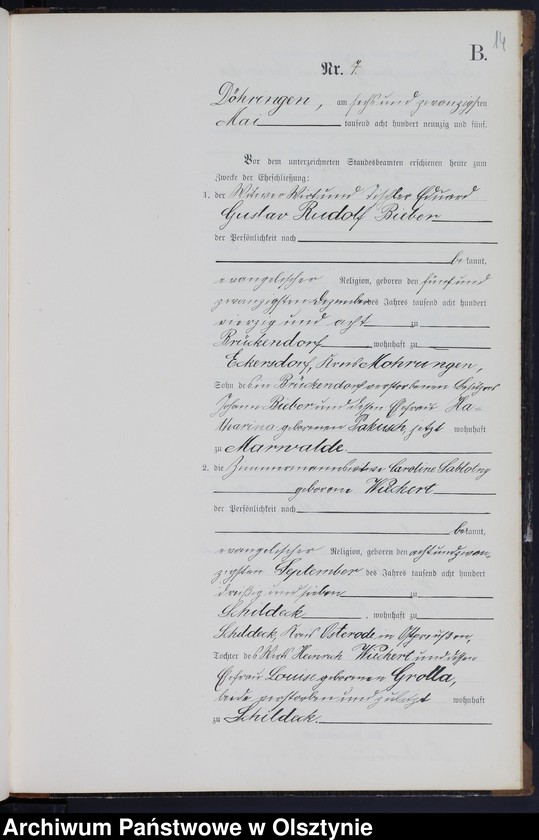 14
B.
Nr. 7.
Döhringen, am sechs und zwanzigsten
Mai tausend acht hundert neunzig und fünf.
Vor dem unterzeichneten Standesbeamten erschienen heute zum
Zwecke der Eheschließung:
1. der Witwer Wirt und Tischler Eduard
Gustav Rudolf Bieber
der Persönlichkeit nach
bekannt,
evangelischer Religion, geboren den fünf und
zwanzigsten Dezember des Jahres tausend acht hundert
vierzig und acht zu
Brückendorf, wohnhaft zu
Eckersdorf, Kreis Mohrungen,
Sohn des in Brückendorf verstorbenen Besitzers
Johann Bieber und dessen Ehefrau Ka-
tharina geborenen Pakusch, jetzt wohnhaft
zu Marwalde.
2. die Zimmermannswitwe Caroline
geborene Wichert
der Persönlichkeit nach
bekannt,
evangelischer Religion, geboren den acht und zwan-
zigsten September des Jahres tausend acht hundert
dreißig und sieben zu
Schildeck, wohnhaft zu
Schildeck, Kreis Osterode in Ostpreußen,
Tochter des Wirts Heinrich Wichert und dessen
Ehefrau Louise geborenen Grolla,
beide verstorben und zuletzt wohnhaft
zu Schildeck.
Archiwum Państwowe w Olsztynie